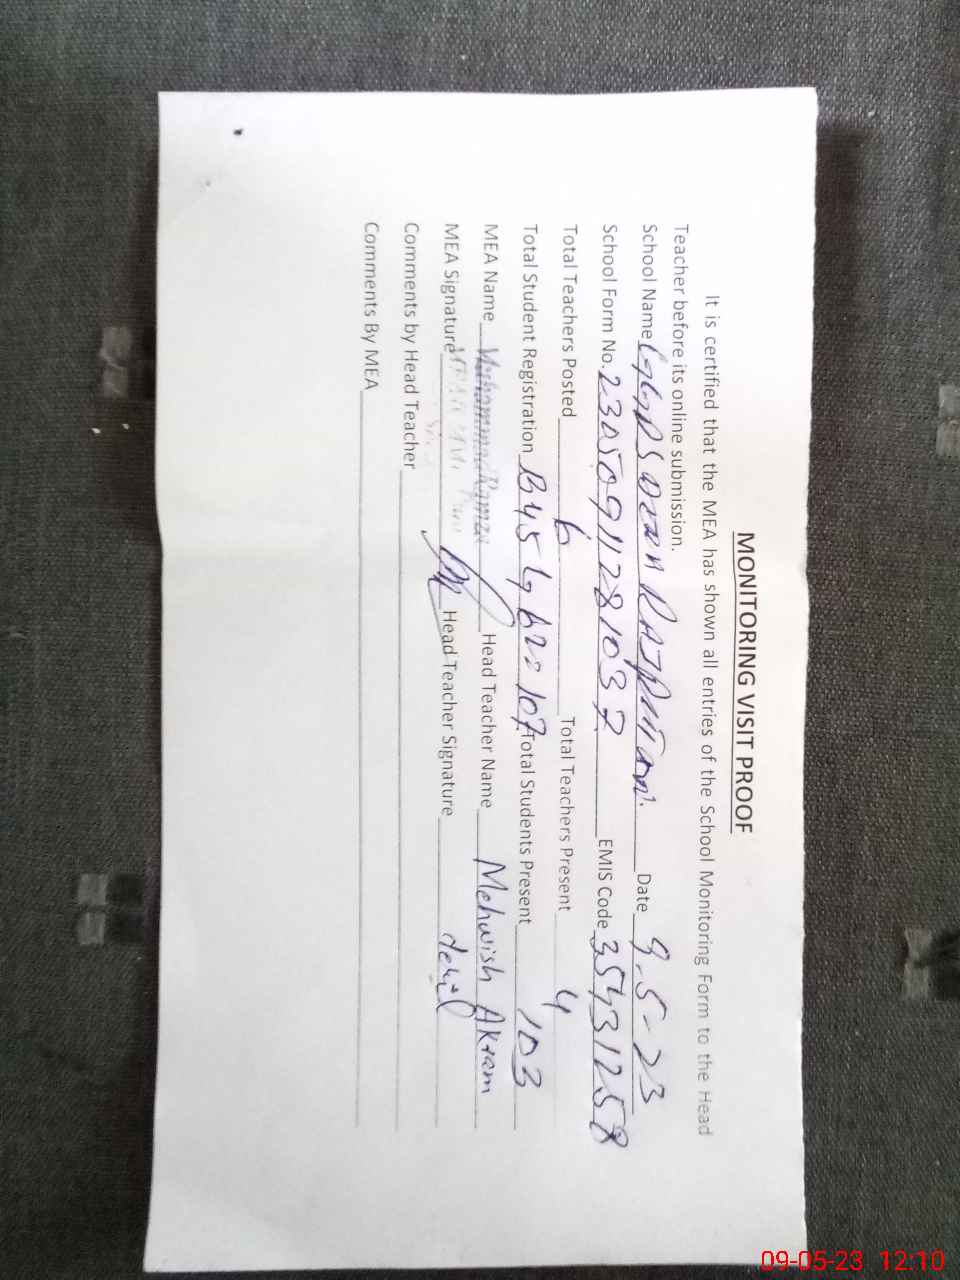 MONITORING VISIT PROOF
It is certified that the MEA has shown all entries of the School Monitoring Form to the Head
Teacher before its online submission.
School Name Date 9.5-23
School Form No. 23050911281037 EMIS Code 35431258
Total Teachers Posted 6 Total Teachers Present 4
Total Student Registration B45 G 62=107 Total Students Present 103
MEA Name Muhammad Head Teacher Name Mehwish Akram
MEA Signature Head Teacher Signature
Comments by Head Teacher
Comments By MEA
09-05-23 12:10